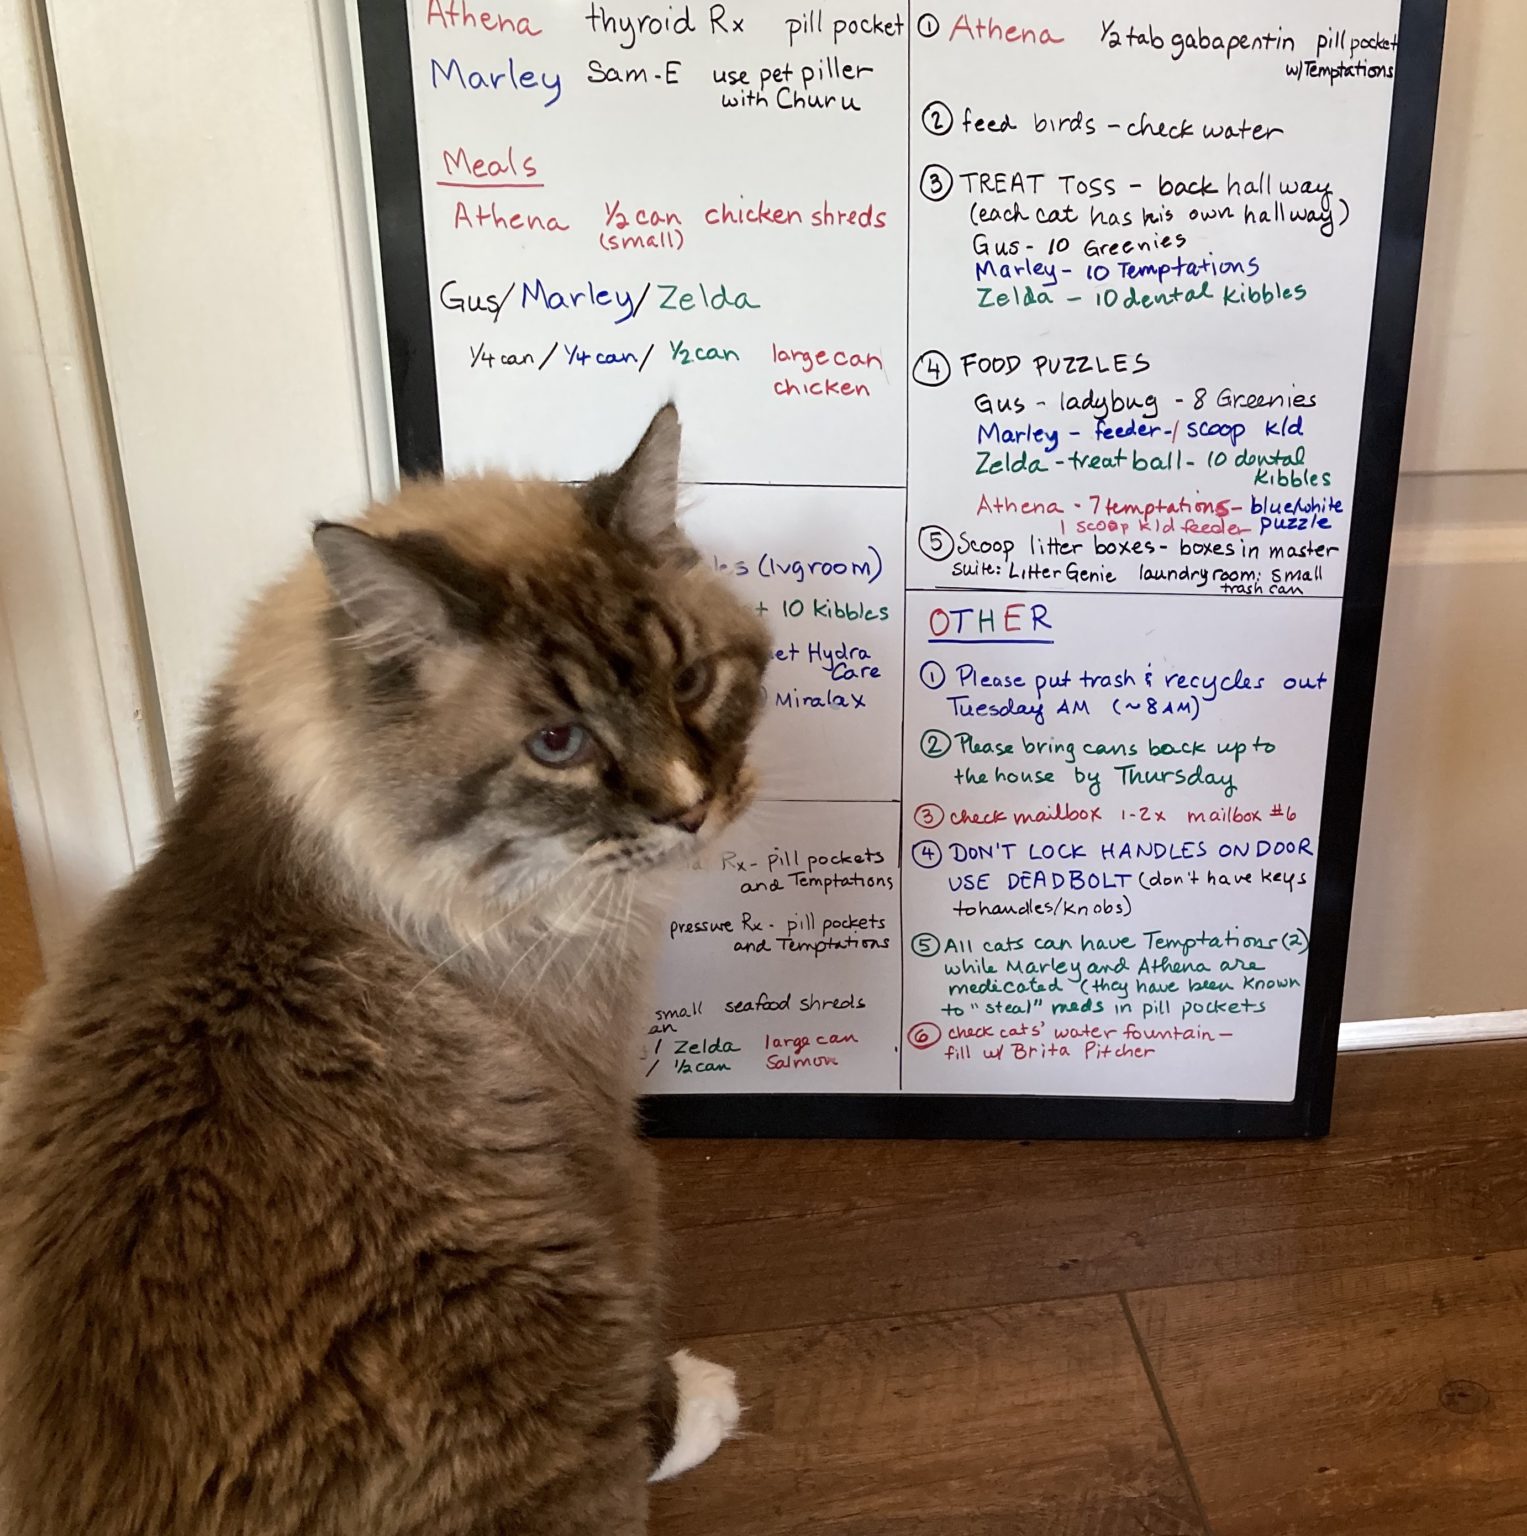 Athena thyroid Rx pill pocket
Marley Sam-E use pet piller
with Churu
Meals
Athena 1/2 can chicken shreds
(small)
Gus/Marley/Zelda
1/4 can / 1/4 can / 1/2 can large can
chicken
(lvgroom)
+ 10 Kibbles
Hydra
Care
Miralax
Rx - pill pockets
and Temptations
pressure Rx - pill pockets
and Temptations
small seafood shreds
/ Zelda large can
/ 1/2 can Salmon
① Athena 1/2 tab gabapentin pill pocket
w/Temptations
② feed birds - check water
③ TREAT TOSS - back hallway
(each cat has his own hallway)
Gus - 10 Greenies
Marley - 10 Temptations
Zelda - 10 dental kibbles
④ FOOD PUZZLES
Gus - ladybug - 8 Greenies
Marley - feeder - 1 scoop k/d
Zelda - treat ball - 10 dental
kibbles
Athena - 7 temptations - blue/white
1 scoop k/d feeder puzzle
⑤ Scoop litter boxes - boxes in master
suite: Litter Genie laundry room: small
trash can
OTHER
① Please put trash & recycles out
Tuesday AM (~8 AM)
② Please bring cans back up to
the house by Thursday
③ check mailbox 1-2x mailbox #6
④ DON'T LOCK HANDLES ON DOOR
USE DEADBOLT (don't have keys
to handles/knobs)
⑤ All cats can have Temptations (2)
while Marley and Athena are
medicated (they have been known
to "steal" meds in pill pockets
⑥ check cats' water fountain -
fill w/ Brita Pitcher